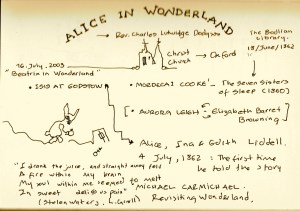 ALICE IN WONDERLAND
→ Rev. Charles Lutwidge Dodgson
The Bodlian
Library.
18/June/1862
Christ
Church
→ Oxford
16, July, 2003
"Beatrix in Wonderland"
• ISIS AT GODSTOW
• 'MORDECAI COOKE' - The seven sisters
of sleep (1860)
[• AURORA LEIGH: Elizabeth Barret
Browning ]
Alice, Ina & Edith Liddell.
4 July, 1862 : The first time
he told the story
"I drank the juice, and straightway fell
A fire within my brain
My soul within me seemed to melt
In sweet delirious pain"
(Stolen waters, L. Carroll)
MICHAEL CARMICHAEL.
Revisiking Wonderland.